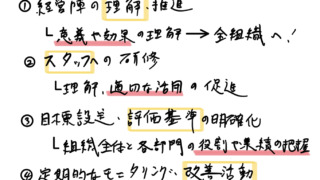 ① 経営陣の理解、推進
┗意義や効果の理解 → 全組織へ!
② スタッフへの研修
┗理解、適切な活用の促進
③ 目標設定、評価基準の明確化
┗組織全体と各部門の役割や業績の把握
④ 定期的なモニタリング、改善活動